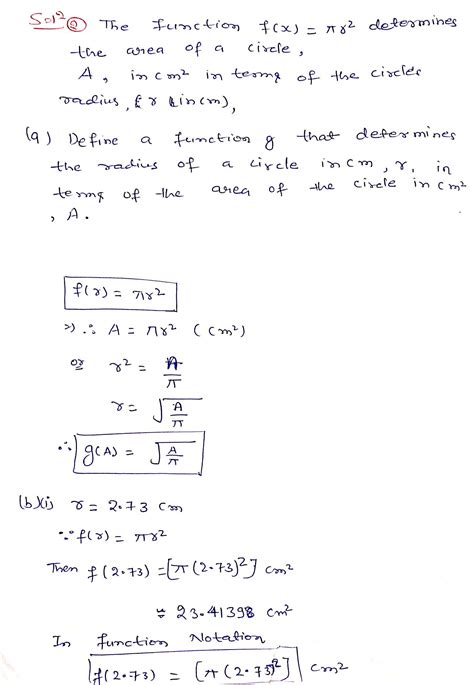 Solⁿ ② The function f(x) = πr² determines
the area of a circle,
A, in cm² in terms of the circle's
radius, r (in cm),
(a) Define a function g that determines
the radius of a circle in cm, r, in
terms of the area of the circle in cm²
, A.
f(r) = πr²
=> ∴ A = πr² (cm²)
or r² = A/π
r = √(A/π)
∴ g(A) = √(A/π)
(b)(i) r = 2.73 cm
∵ f(r) = πr²
Then f(2.73) = [π(2.73)²] cm²
≈ 23.41398 cm²
In function Notation
f(2.73) = [π(2.73)²] cm²